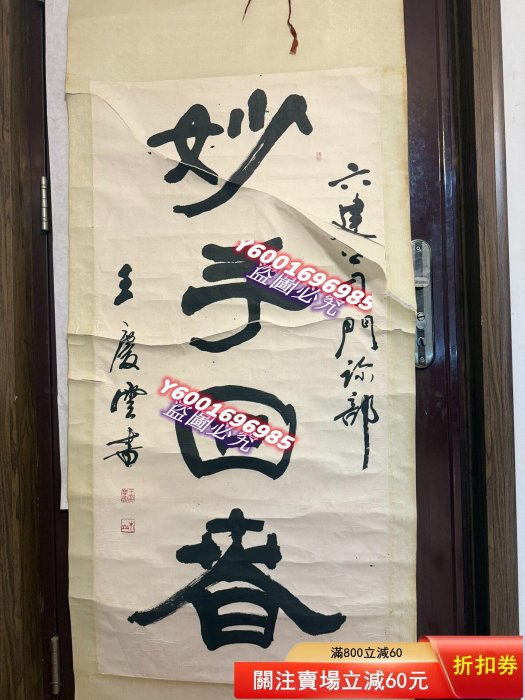 妙手回春
六建公司門診部
王慶雲書
Y6001696985
盜圖必究
Y6001696985
盜圖必究
滿800立減60
關注賣場立減60元
折扣券